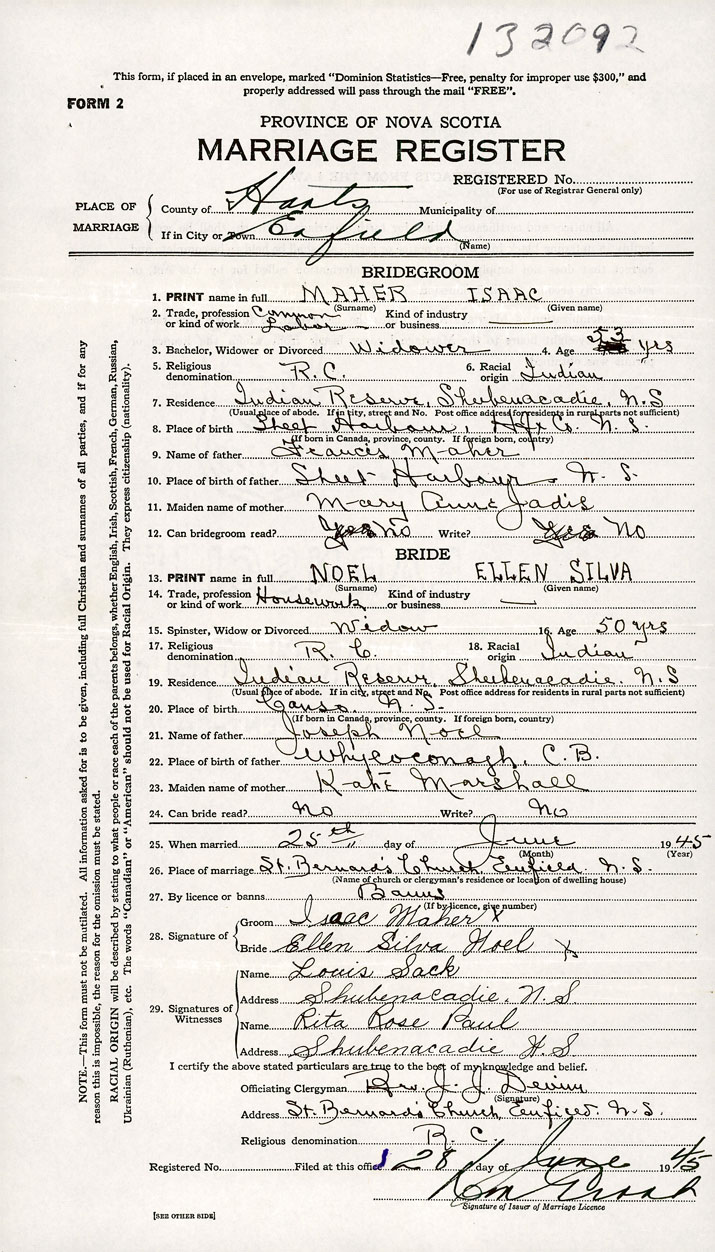 132092
This form, if placed in an envelope, marked "Dominion Statistics—Free, penalty for improper use $300," and
properly addressed will pass through the mail "FREE".
FORM 2
PROVINCE OF NOVA SCOTIA
MARRIAGE REGISTER
REGISTERED No.
(For use of Registrar General only)
PLACE OF MARRIAGE
County of Hants Municipality of
If in City or Town Enfield
(Name)
BRIDEGROOM
1. PRINT name in full MAHER ISAAC
(Surname) (Given name)
2. Trade, profession or kind of work Common Labor Kind of industry or business
3. Bachelor, Widower or Divorced Widower 4. Age 53 yrs
5. Religious denomination R.C. 6. Racial origin Indian
7. Residence Indian Reserve, Shubenacadie, N.S
(Usual place of abode. If in city, street and No. Post office address for residents in rural parts not sufficient)
8. Place of birth Sheet Harbour, Hfx Co. N.S.
(If born in Canada, province, county. If foreign born, country)
9. Name of father Francis Maher
10. Place of birth of father Sheet Harbour N.S.
11. Maiden name of mother Mary Anne Jadis
12. Can bridegroom read? No Write? No
BRIDE
13. PRINT name in full NOEL ELLEN SILVA
(Surname) (Given name)
14. Trade, profession or kind of work Housework Kind of industry or business
15. Spinster, Widow or Divorced Widow 16. Age 50 yrs
17. Religious denomination R.C. 18. Racial origin Indian
19. Residence Indian Reserve, Shubenacadie. N.S
(Usual place of abode. If in city, street and No. Post office address for residents in rural parts not sufficient)
20. Place of birth Canso, N.S.
(If born in Canada, province, county. If foreign born, country)
21. Name of father Joseph Noel
22. Place of birth of father Whycoconagh, C.B.
23. Maiden name of mother Kate Marshall
24. Can bride read? No Write? No
25. When married 25th day of June 1945
(Month) (Year)
26. Place of marriage St. Bernard's Church Enfield. N.S.
(Name of church or clergyman's residence or location of dwelling house)
27. By licence or banns Banns
(If by licence, give number)
28. Signature of
Groom Isaac Maher X
Bride Ellen Silva Noel X
29. Signatures of Witnesses
Name Louis Sack
Address Shubenacadie. N.S.
Name Rita Rose Paul
Address Shubenacadie N.S.
I certify the above stated particulars are true to the best of my knowledge and belief.
Officiating Clergyman Rev. J. J. Devine
(Signature)
Address St. Bernard's Church, Enfield. N.S.
Religious denomination R.C.
Registered No. Filed at this office 28 day of June 1945
Signature of Issuer of Marriage Licence
[SEE OTHER SIDE]
NOTE.—This form must not be mutilated. All information asked for is to be given, including full Christian and surnames of all parties, and if for any
reason this is impossible, the reason for the omission must be stated.
RACIAL ORIGIN will be described by stating to what people or race each of the parents belongs, whether English, Irish, Scottish, French, German, Russian,
Ukrainian (Ruthenian), etc. The words "Canadian" or "American" should not be used for Racial Origin. They express citizenship (nationality).